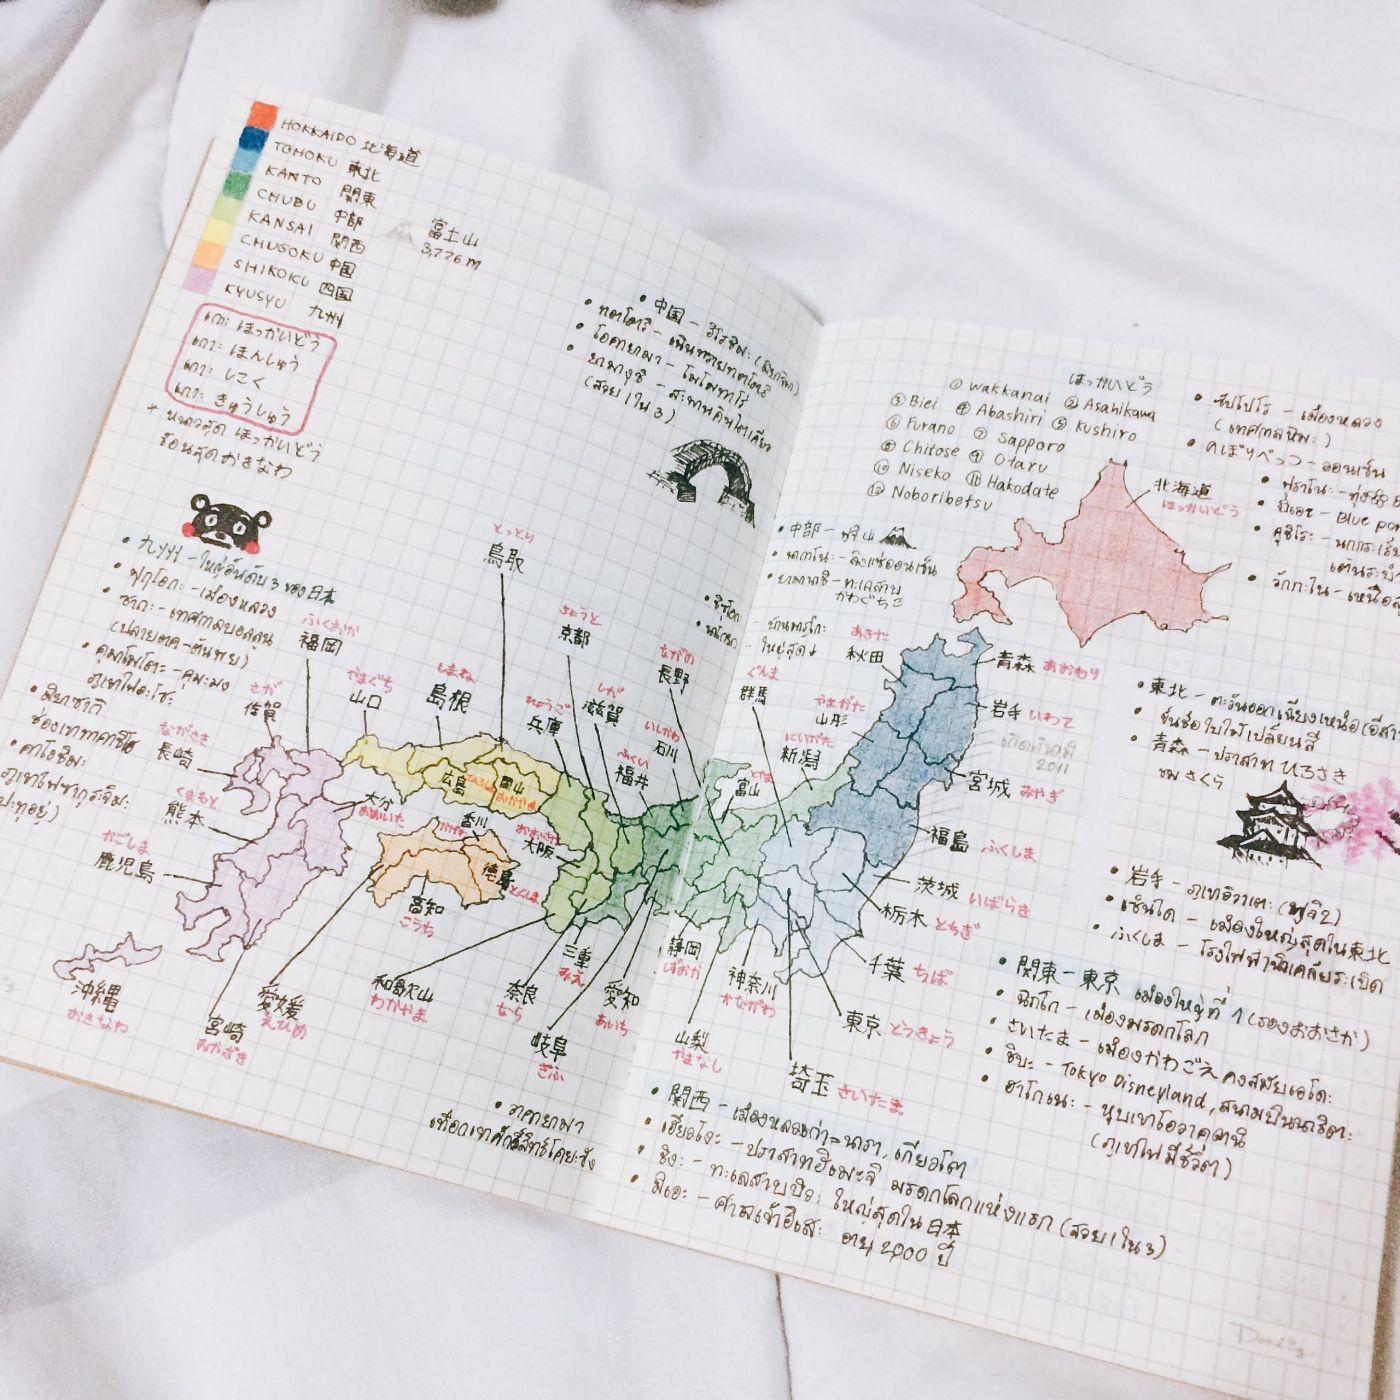 HOKKAIDO 北海道
TOHOKU 東北
KANTO 関東
CHUBU 中部
KANSAI 関西
CHUGOKU 中国
SHIKOKU 四国
KYUSYU 九州
富士山
3,776 m
เกาะ ほっかいどう
เกาะ ほんしゅう
เกาะ しこく
เกาะ きゅうしゅう
หนาวสุด ほっかいどう
ร้อนสุด おきなわ
• 中国 - ฮิโรชิมะ
• ทตโตริ - เนินทรายทตโตริ
• โอคายามา - โมโมทาโร่
• ยามากุชิ - สะพานคินไตเคียว
(สวย 1 ใน 3)
• 九州 - ใหญ่อันดับ 3 ของ日本
• ฟุกุโอกะ - เมืองหลวง
• ซากะ - เทศกาลบอลลูน
(ปลายตค - ต้นพย)
• คุมาโมโตะ - คุมะมง
ภูเขาไฟอะโซะ
• มิยาซากิ
• คาโงชิมะ
ほっかいどう
① Wakkanai ② Asahikawa
③ Biei ④ Abashiri ⑤ Kushiro
⑥ Furano ⑦ Sapporo
⑧ Chitose ⑨ Otaru
⑩ Niseko ⑪ Hakodate
⑫ Noboribetsu
• ซัปโปโร - เมืองหลวง
(เทศกาลหิมะ)
• のぼりべつ - ออนเซ็น
• ฟุราโนะ - ทุ่ง
• บิเอะ - Blue
• คุชิโระ - นกกระเรีย
• วักกะไน - เหนือ
北海道
ほっかいどう
• 中部 -
• นากาโนะ - ลิงแช่ออนเซ็น
• ยามานาชิ - ทะเลสาบ
かわぐちこ
とっとり
鳥取
きょうと
京都
ながの
長野
ぐんま
群馬
あきた
秋田
青森 あおもり
岩手 いわて
เกิดสึนามิ
2011
宮城 みやぎ
福島 ふくしま
茨城 いばらき
栃木 とちぎ
千葉 ちば
東京 とうきょう
埼玉 さいたま
やまがた
山形
にいがた
新潟
とやま
富山
いしかわ
石川
しが
滋賀
ふくい
福井
ひょうご
兵庫
しまね
島根
やまぐち
山口
ふくおか
福岡
さが
佐賀
ながさき
長崎
くまもと
熊本
かごしま
鹿児島
大分
おおいた
広島 ひろしま
岡山
おかやま
香川
かがわ
おおさか
大阪
徳島
とくしま
高知
こうち
沖縄
おきなわ
宮崎
みやざき
愛媛
えひめ
和歌山
わかやま
奈良
なら
三重
みえ
岐阜
ぎふ
愛知
あいち
静岡
山梨
やまなし
神奈川
かながわ
• 東北 - ตะวันออกเฉียงเหนือ
ขึ้นชื่อใบไม้เปลี่ยนสี
• 青森 - ปราสาท ひろさき
ชม さくら
• 岩手 - ภูเขาอิวาเตะ (ฟูจิ 2)
• เซ็นได - เมืองใหญ่สุดใน東北
• ふくしま - โรงไฟฟ้านิวเคลียระเบิด
• 関東 - 東京 เมืองใหญ่ที่ 1 (รองおおさか)
• นิกโก - เมืองมรดกโลก
• さいたま - เมืองかわごえ คงสมัยเอโดะ
• ชิบะ - Tokyo Disneyland, สนามบินนาริตะ
• ฮาโกเนะ - หุบเขาโอวาคุดานิ
(ภูเขาไฟมีชีวิต)
• วาคายามา
• 関西 - เมืองหลวงเก่า = นารา, เกียวโต
• เฮียวโงะ - ปราสาทฮิเมะจิ มรดกโลกแห่งแรก (สวย 1 ใน 3)
• ชิงะ - ทะเลสาบบิวะ ใหญ่สุดใน 日本
• มิเอะ - ศาลเจ้าอิเสะ อายุ 2000 ปี